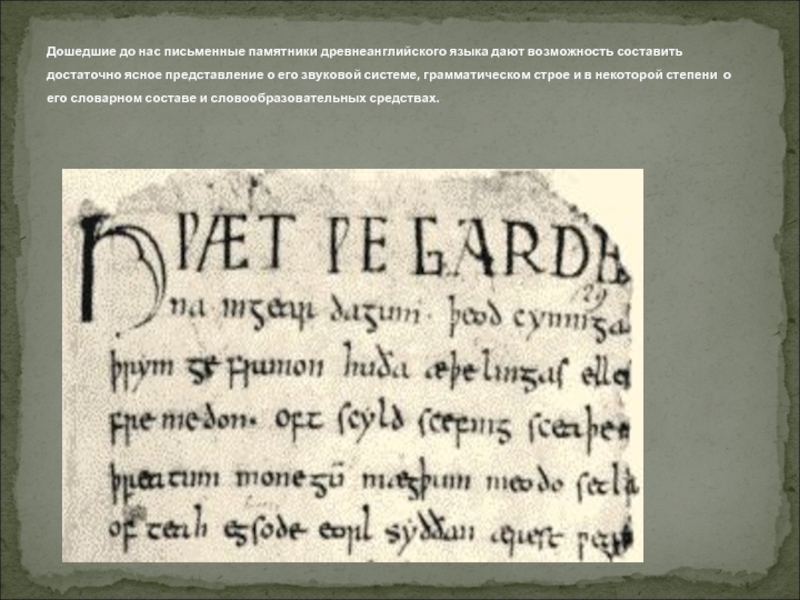 Дошедшие до нас письменные памятники древнеанглийского языка дают возможность составить
достаточно ясное представление о его звуковой системе, грамматическом строе и в некоторой степени о
его словарном составе и словообразовательных средствах.
HǷÆT ǷE GARDE
na ingear dagum. þeod cyninga
þrym ge frunon huða æþelingas elle
fre medon. oft scyld scefing sceaþe
þreatum monegū mægþum meodo setla
of teah egsode eorl syððan ærest